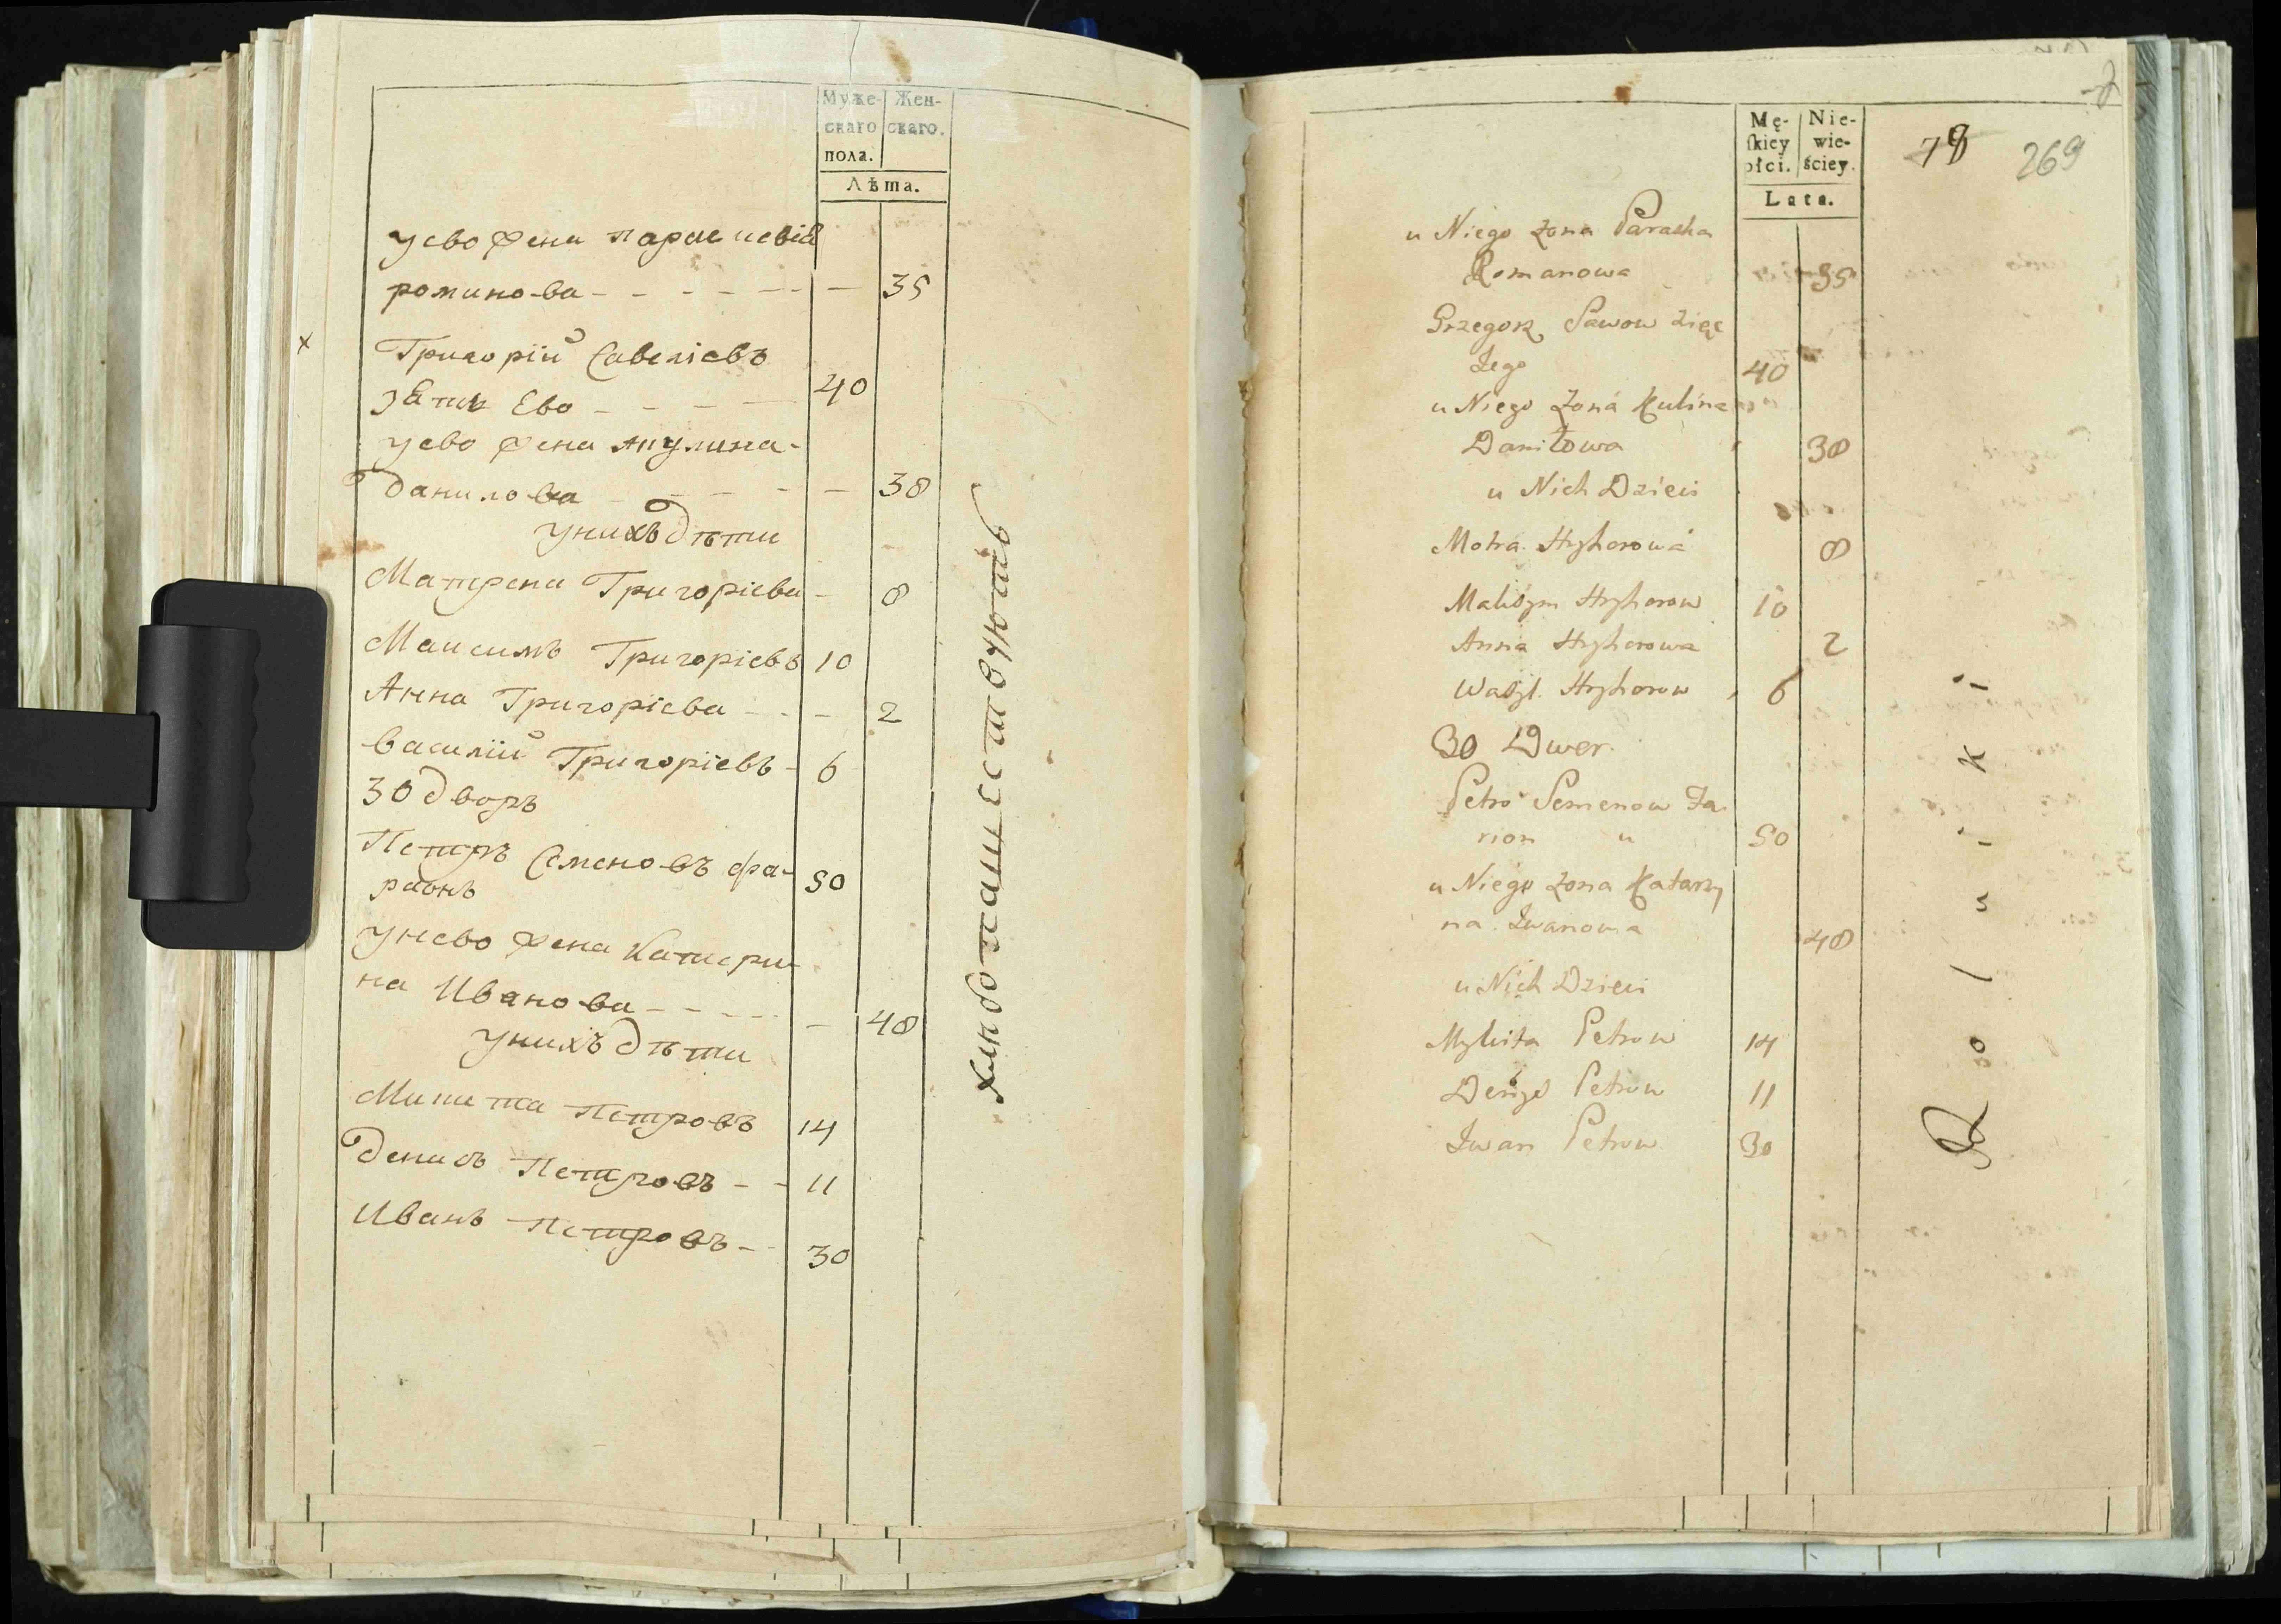 Муже- Жен-
скаго скаго.
пола.
Лѣта.
уево жена параскевія
романова - - - - - - - 35
х
Григорій Савеліевъ
зять Ево - - - - 40
уево жена Акулина -
данилова - - - - - 38
унихъ дѣти
Матрена Григоріева - 8
Максимъ Григоріевъ 10
Анна Григоріева - - - 2
василій Григоріевъ - 6
30 дворъ
Петръ Семеновъ фа-
раонъ 50
унево жена Катери-
на Иванова - - - - - 48
унихъ дѣти
Микита Петровъ 14
денисъ Петровъ - - 11
Иванъ Петровъ - - 30
хлѣбопашествуютъ
Mę- Nie-
ſkiey wie-
płci. ściey.
Lata.
79 269
u Niego żona Paraska
Romanowa 35
Grzegorz Sawow zięc
Jego 40
u Niego żona Kulina
Daniłowa 38
u Nich Dzieci
Motra Hryhorowa 8
Maksym Hryhorow 10
Anna Hryhorowa 2
Wasyl Hryhorow 6
30 Dwor.
Petro Semenow Fa-
rion 50
u Niego żona Katarzy
na Iwanowa 48
u Nich Dzieci
Mykita Petrow 14
Denys Petrow 11
Iwan Petrow 30
Rolniki